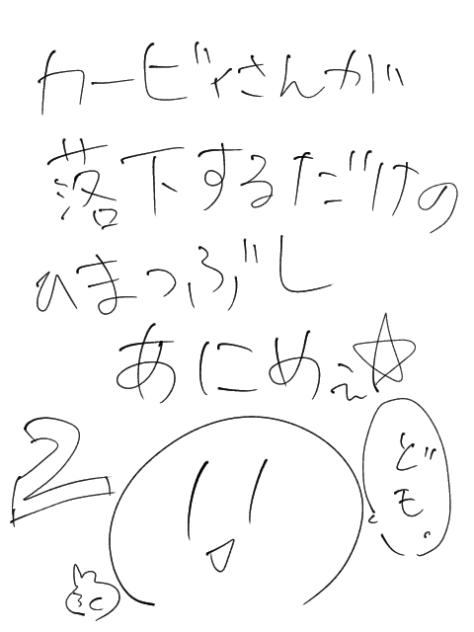 カービィさんが
落下するだけの
ひまつぶし
あにめぇ☆
2
ども。